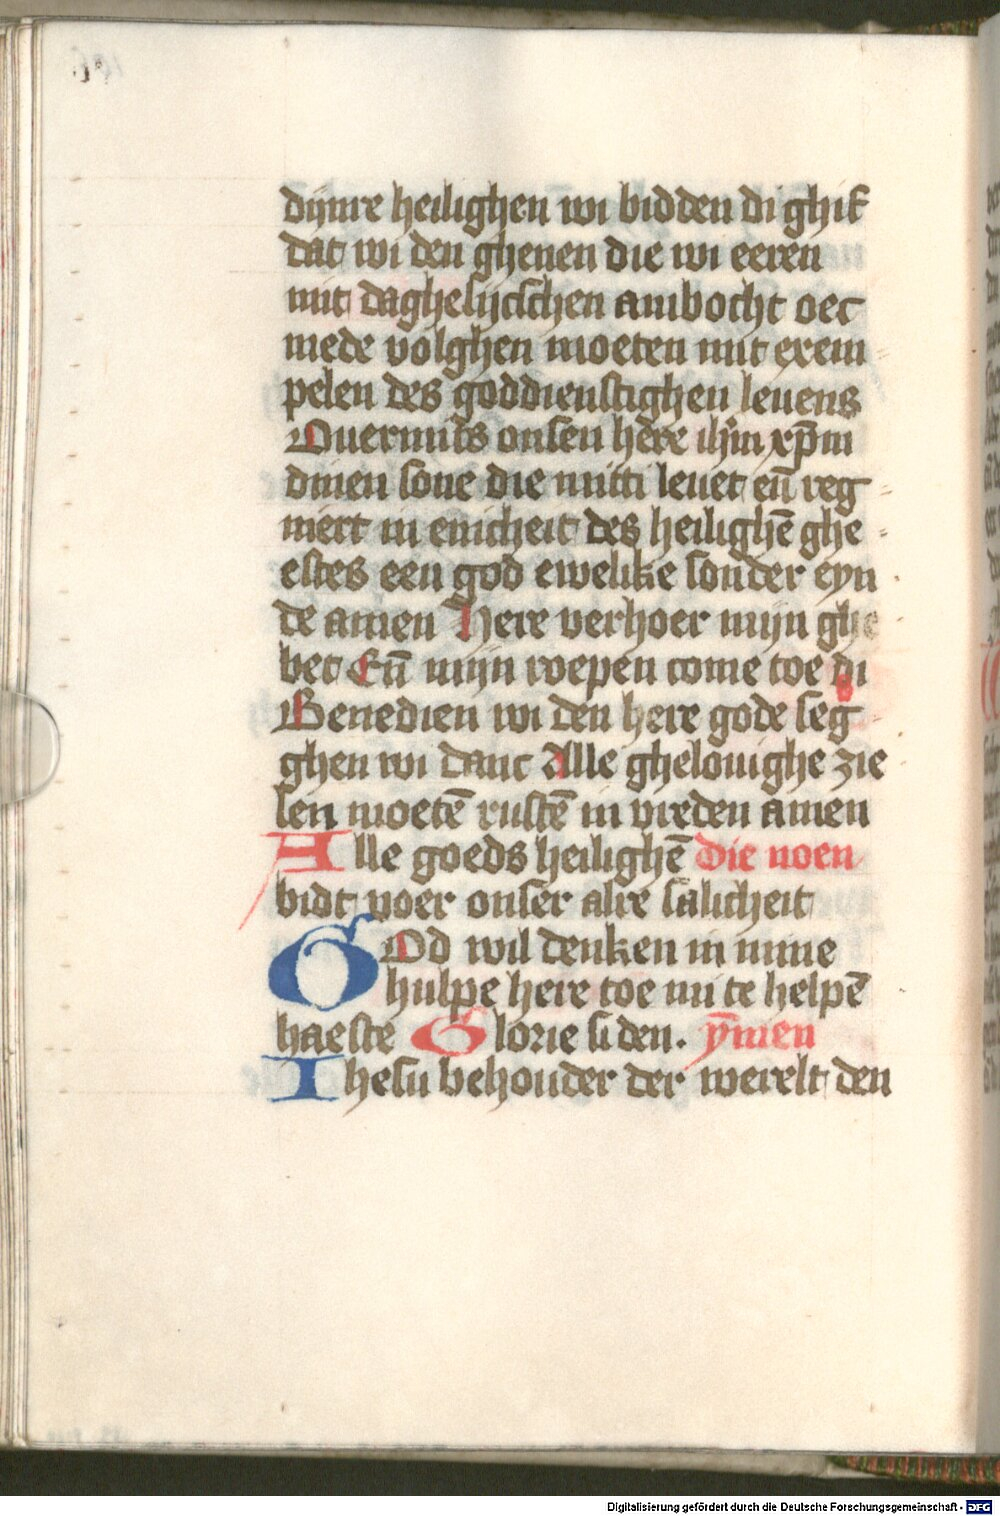 dijnre heilighen wi bidden di ghif
dat wi den ghenen die wi eeren
mit daghelijcschen ambocht oec
mede volghen moeten mit exem
pelen des goddienstighen leuens
Ouermids onsen here ihm xpm
dinen sone die mitti leuet eñ reg
niert in enicheit des heilighē ghe
estes een god ewelike sonder eyn
de amen Here verhoer mijn ghe
bet Eñ mijn roepen come toe di
Benedien wi den here gode seg
ghen wi danc Alle ghelouighe zie
len moetē rustē in vreden amen
Alle goeds heilighē die noen
bidt voer onser alre salicheit
GOd wil denken in mine
hulpe here toe mi te helpē
haeste Glorie si den. ȳmen
Ihesu behouder der werelt den
Digitalisierung gefördert durch die Deutsche Forschungsgemeinschaft - DFG